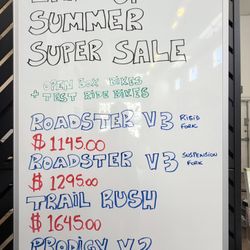 END OF
SUMMER
SUPER SALE
OPEN BOX BIKES
+ TEST RIDE BIKES
ROADSTER V3 RIGID FORK
$1145.00
ROADSTER V3 SUSPENSION FORK
$1295.00
TRAIL RUSH
$1645.00
PRODIGY V2